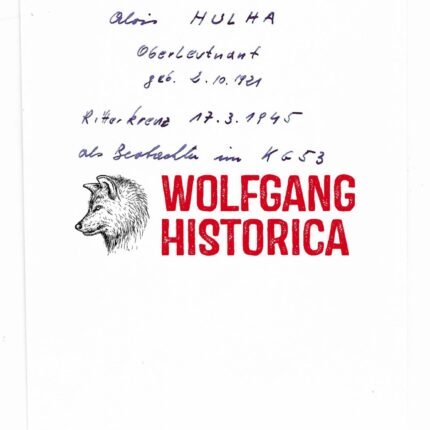 Alois HULHA
Oberleutnant
geb. 2.10.1921
Ritterkreuz 17.3.1945
als Beobachter im KG53
WOLFGANG
HISTORICA